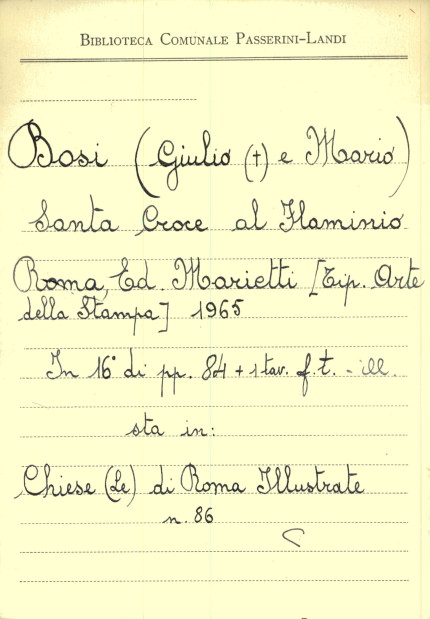 BIBLIOTECA COMUNALE PASSERINI-LANDI
Bosi (Giulio (†) e Mario)
Santa Croce al Flaminio
Roma, Ed. Marietti [Tip. Arte
della Stampa] 1965
In 16° di pp. 84 + 1 tav. f.t. - ill.
sta in:
Chiese (Le) di Roma Illustrate
n. 86